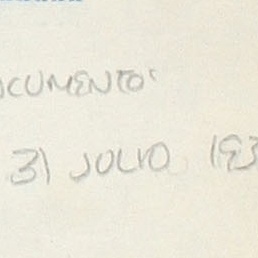 OCUMENTO'
31 JULIO 193